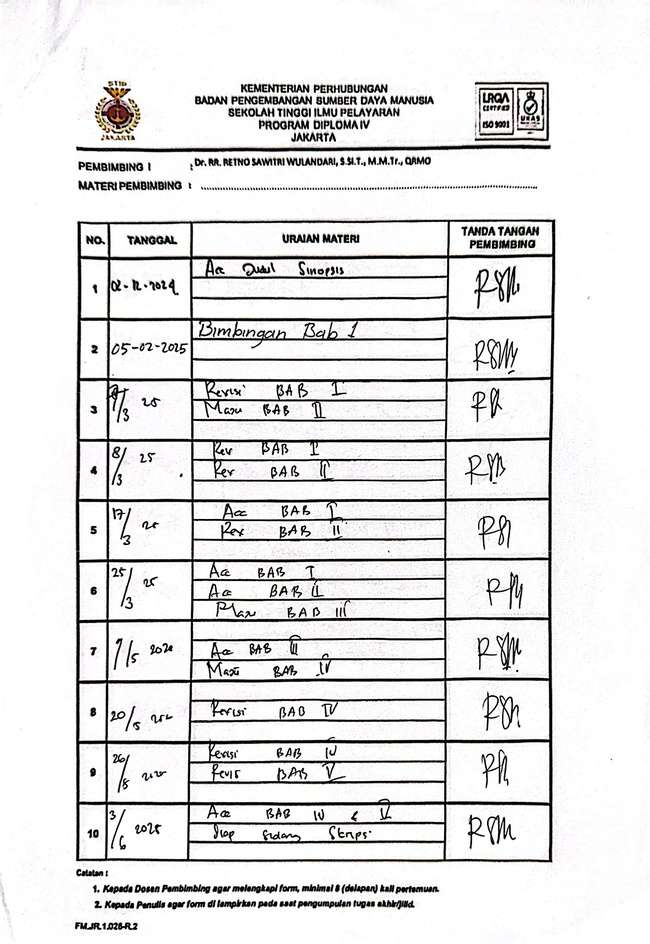 STIP
JAKARTA
KEMENTERIAN PERHUBUNGAN
BADAN PENGEMBANGAN SUMBER DAYA MANUSIA
SEKOLAH TINGGI ILMU PELAYARAN
PROGRAM DIPLOMA IV
JAKARTA
LRQA
CERTIFIED
ISO 9001
UKAS
PEMBIMBING I : Dr. RR. RETNO SAWITRI WULANDARI, S.SI.T., M.M.Tr., QRMO
MATERI PEMBIMBING :
NO. TANGGAL URAIAN MATERI TANDA TANGAN PEMBIMBING
1 02-12-2024 Acc Judul Sinopsis
2 05-02-2025 Bimbingan Bab 1
3 /3 25 Revisi BAB I
BAB II
4 8/3 25 Rev BAB I
Rev BAB II
5 17/3 25 Acc BAB I
Rev BAB II
6 25/3 25 Acc BAB I
Acc BAB II
BAB III
7 /5 Acc BAB III
BAB IV
8 20/5 Revisi BAB IV
9 26/5 2025 Revisi BAB IV
Revisi BAB V
10 3/6 2025 Acc BAB IV & V
Siap Sidang Skripsi
Catatan :
1. Kepada Dosen Pembimbing agar melengkapi form, minimal 8 (delapan) kali pertemuan.
2. Kepada Penulis agar form di lampirkan pada saat pengumpulan tugas akhir/jilid.
FM.JR.1.026-R.2